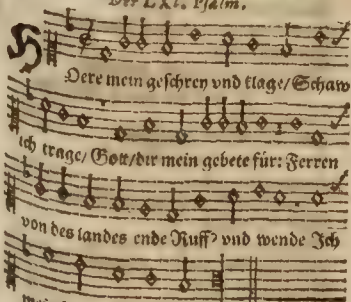 Der LXI. Psalm.
HOere mein geschrey vnd klage/ Schaw
ich trage/ Gott/ dir mein gebete für: Ferren
von des landes ende Ruff' vnd wende Ich